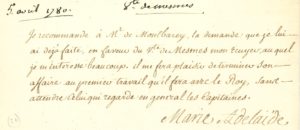 5. avril 1780.
Vte de mesmes
Je recommande à Mr. de Montbarey, la demande que je lui
ai déja faite, en faveur du Vte. de Mesmes mon Ecuyer, auquel
je m'interesse beaucoup. il me fera plaisir de terminer son
affaire au premier travail qu'il fera avec le Roy, sans
attendre celui qui regarde en general les Capitaines.
Marie Adelaïde